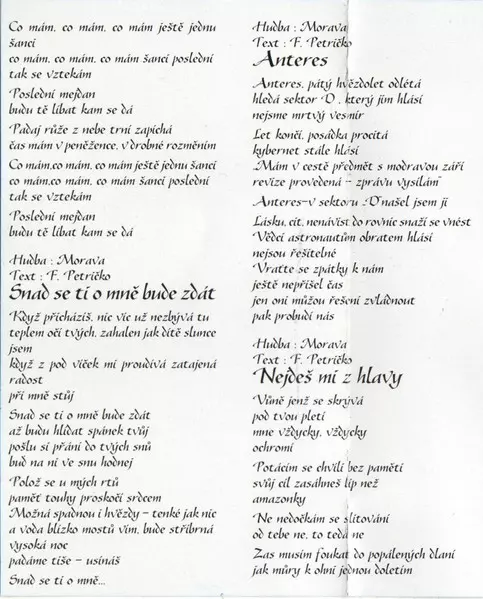 Co mám, co mám, co mám ještě jednu
šanci
co mám, co mám, co mám šanci poslední
tak se vztekám
Poslední mejdan
budu tě líbat kam se dá
Padaj růže z nebe trní zapíchá
čas mám v peněžence, v drobné rozměním
Co mám,co mám, co mám ještě jednu šanci
co mám,co mám, co mám šanci poslední
tak se vztekám
Poslední mejdan
budu tě líbat kam se dá
Hudba : Morava
Text : F. Petričko
Snad se ti o mně bude zdát
Když přicházíš, nic víc už nezbývá tu
teplem očí tvých, zahalen jak dítě slunce
jsem
když z pod víček mi proudívá zatajená
radost
při mně stůj
Snad se ti o mně bude zdát
až budu hlídat spánek tvůj
pošlu si přání do tvých snů
buď na ni ve snu hodnej
Polož se u mých rtů
paměť touhy proskočí srdcem
Možná spadnou i hvězdy - tenké jak nic
a voda blízko mostů vím, bude stříbrná
vysoká noc
padáme tiše - usínáš
Snad se ti o mně...
Hudba : Morava
Text : F. Petričko
Anteres
Anteres, pátý hvězdolet odlétá
hledá sektor O , který jim hlásí
nejsme mrtvý vesmír
Let končí, posádka procitá
kybernet stále hlásí
„Mám v cestě předmět s modravou září
revize provedena - zprávu vysílám"
Anteres-v sektoru „O"našel jsem ji
Lásku, cit, nenávist do rovnic snaží se vnést
Vědci astronautům obratem hlásí
nejsou řešitelné
Vraťte se zpátky k nám
ještě nepřišel čas
jen oni můžou řešení zvládnout
pak probudí nás
Hudba : Morava
Text : F. Petričko
Nejdeš mi z hlavy
Vůně jenž se skrývá
pod tvou pletí
mne vždycky, vždycky
ochromí
Potácím se chvíli bez paměti
svůj cíl zasáhneš líp než
amazonky
Ne nedočkám se slitování
od tebe ne, to teda ne
Zas musím foukat do popálených dlaní
jak můry k ohni jednou doletím